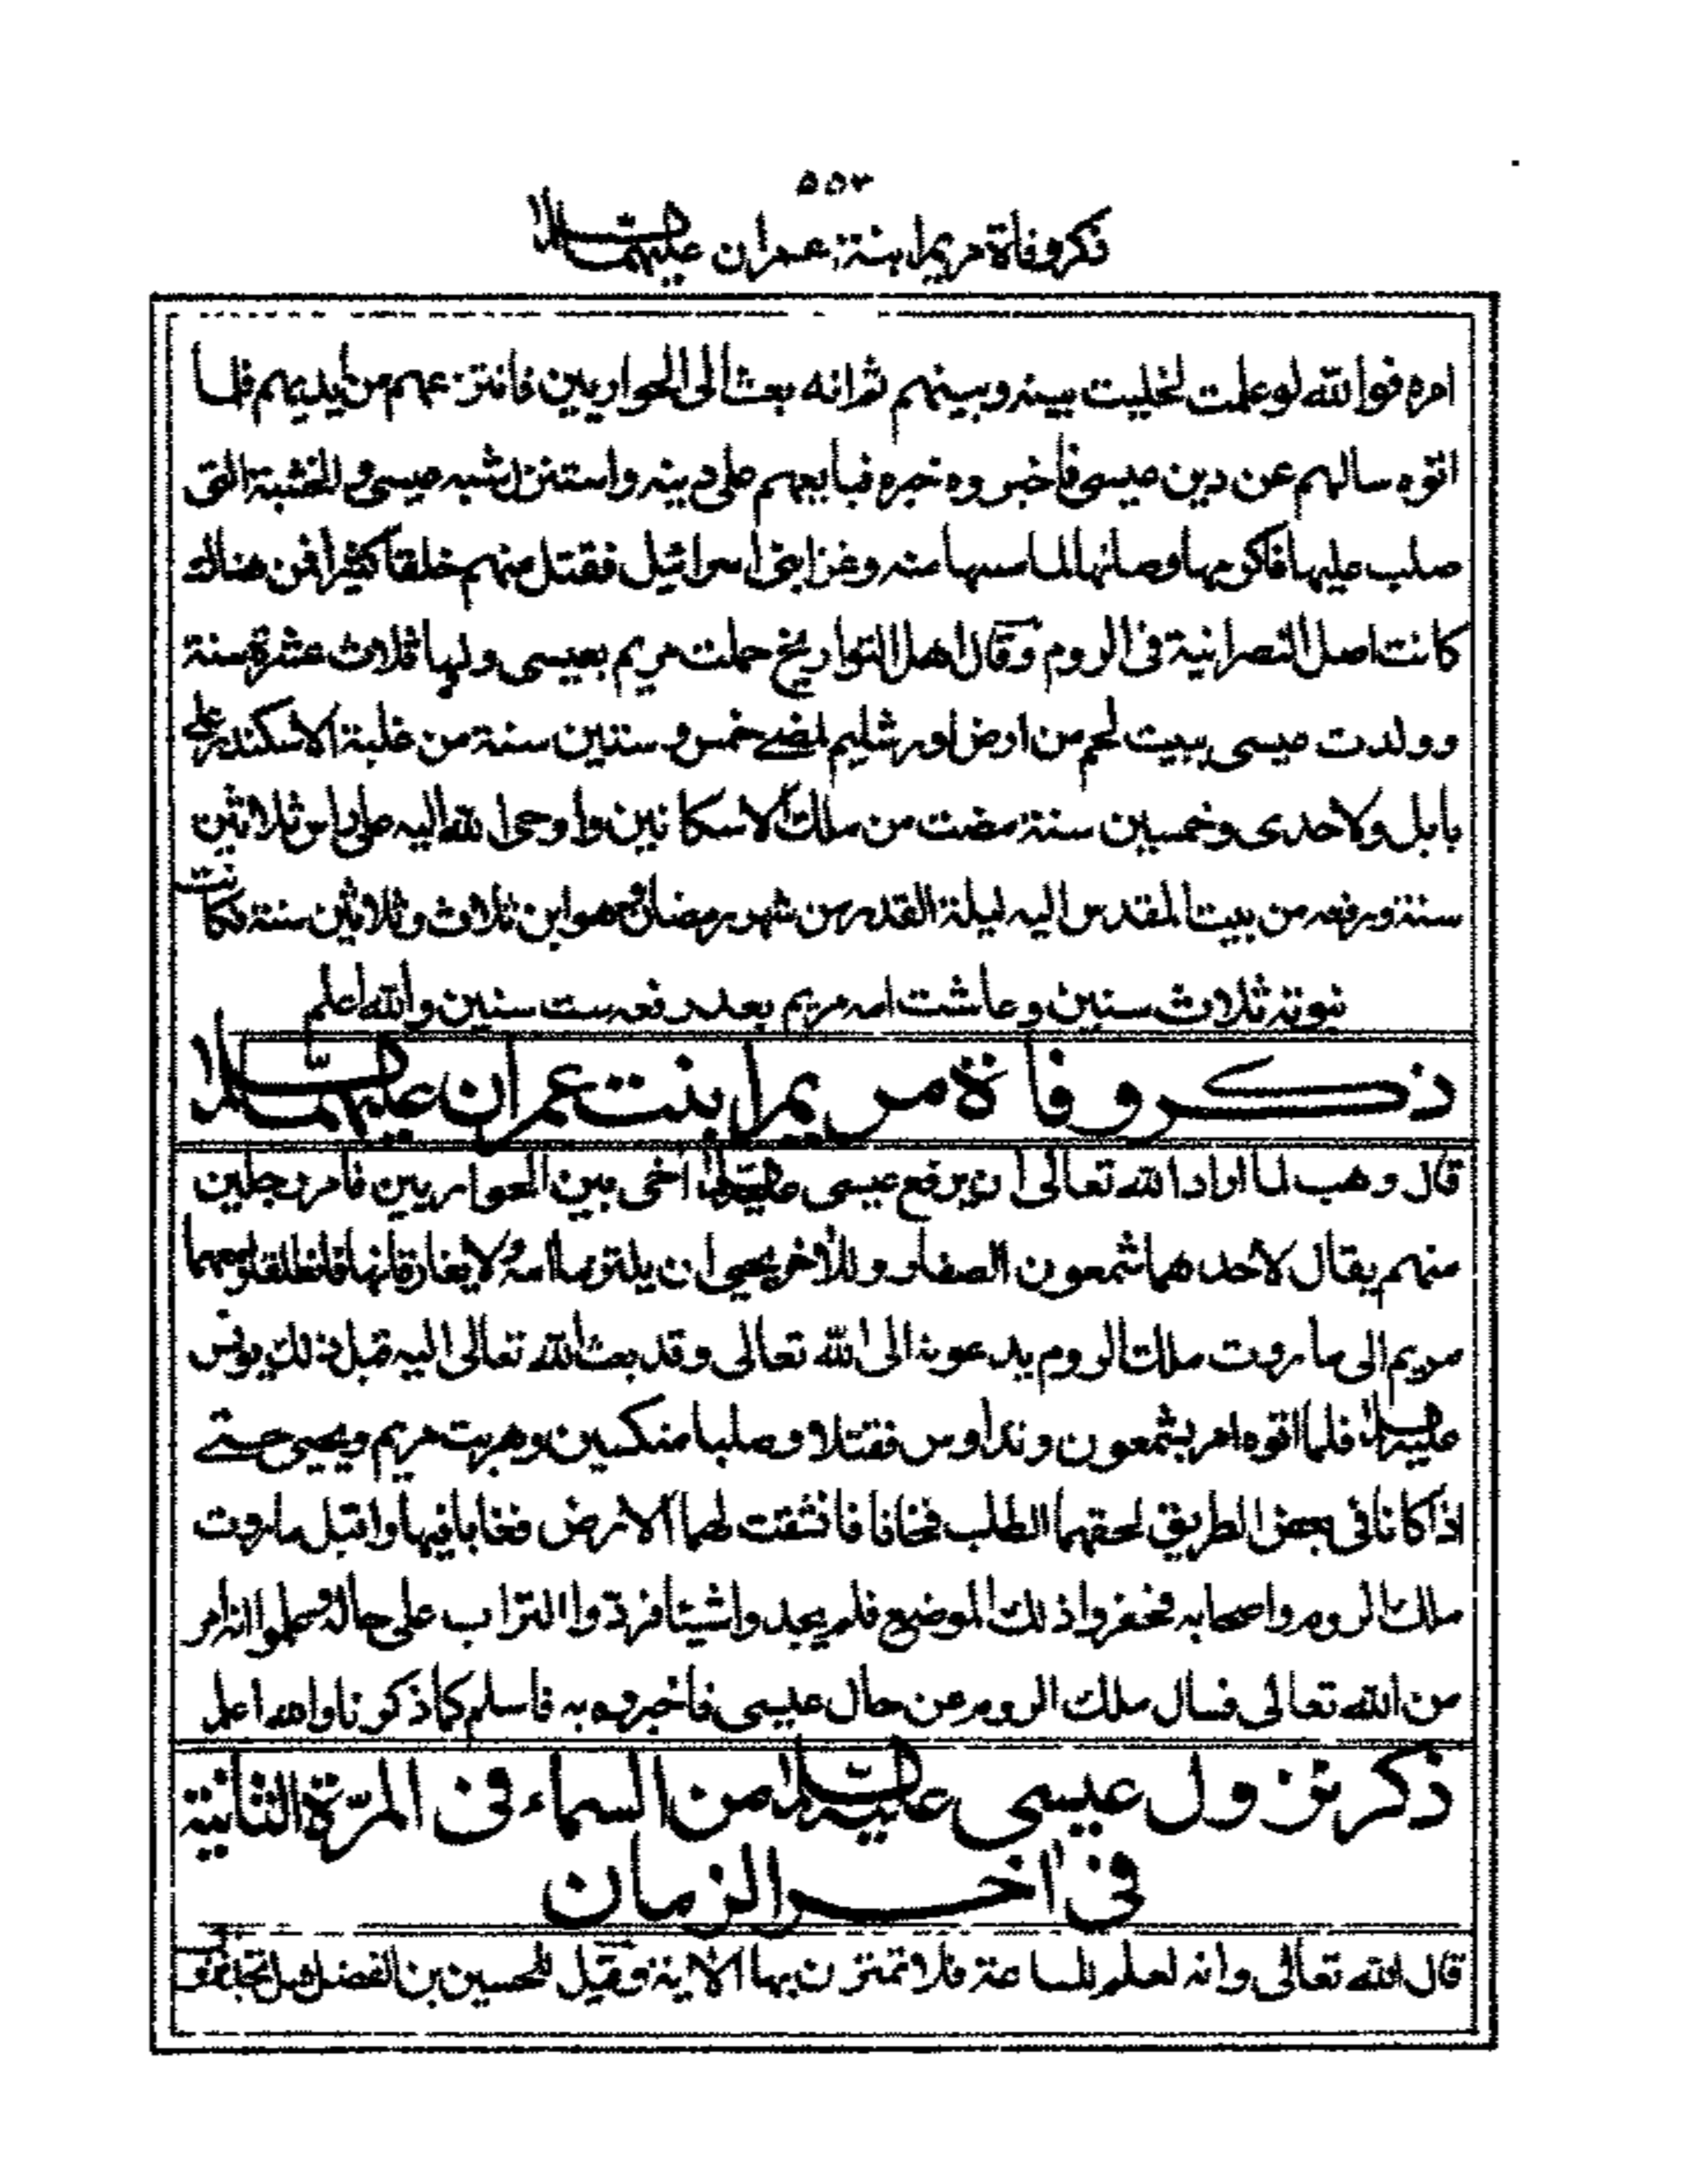 ٥٥٣
ذكر وفاة مريم ابنة عمران عليهما السلام
امره فوالله لو علمت لخليت بينه وبينهم ثم انه بعث الى الحواريين فانتزعهم من ايديهم فلما
اتوه سالهم عن دين عيسى فاخبروه خبره فبايعهم على دينه واستنزل شبه عيسى والخشبة التى
صلب عليها فاكرمها وصانها لما مسها منه وغزا بنى اسرائيل فقتل منهم خلقا كثيرا فمن هنالك
كانت اصل النصرانية فى الروم وقال اهل التواريخ حملت مريم بعيسى ولها ثلاث عشرة سنة
وولدت عيسى ببيت لحم من ارض اورشليم لمضے خمس وستين سنة من غلبة الاسكندر على
بابل ولاحدى وخمسين سنة مضت من ملك الاسكانين واوحى الله اليه على راس ثلاثين
سنة ورفعه من بيت المقدس اليه ليلة القدر من شهر رمضان وهو ابن ثلاث وثلاثين سنة فكانت
نبوته ثلاث سنين وعاشت امه مريم بعد رفعه ست سنين والله اعلم
ذكر وفاة مريم ابنت عمران عليهما السلام
قال وهب لما اراد الله تعالى ان يرفع عيسى عليه السلام اخى بين الحواريين فامر رجلين
منهم يقال لاحدهما شمعون الصفار وللآخر يحيى ان يلتزما امه ولا يفارقانها فانطلقا ومعهما
مريم الى ماروت ملك الروم يدعونه الى الله تعالى وقد بعث الله تعالى اليه قبل ذلك يونس
عليه السلام فلما اتوه امر بشمعون ونداوس فقتلا وصلبا منكسين وهربت مريم ويحيى حتے
اذا كانا فى بعض الطريق لحقهما الطلب فخافا فانشقت لهما الارض فغابا فيها واقبل ماروت
ملك الروم واصحابه فحفروا ذلك الموضع فلم يجدوا شيئا فردوا التراب على حاله وعلموا انه امر
من الله تعالى فسال ملك الروم عن حال عيسى فاخبروه به فاسلم كما ذكرنا والله اعلم
ذكر نزول عيسى عليه السلام من السماء فى المرّة الثانية
فى اخر الزمان
قال الله تعالى وانه لعلم للساعة فلا تمترن بها الاية وقيل للحسين بن الفضل هل تجد